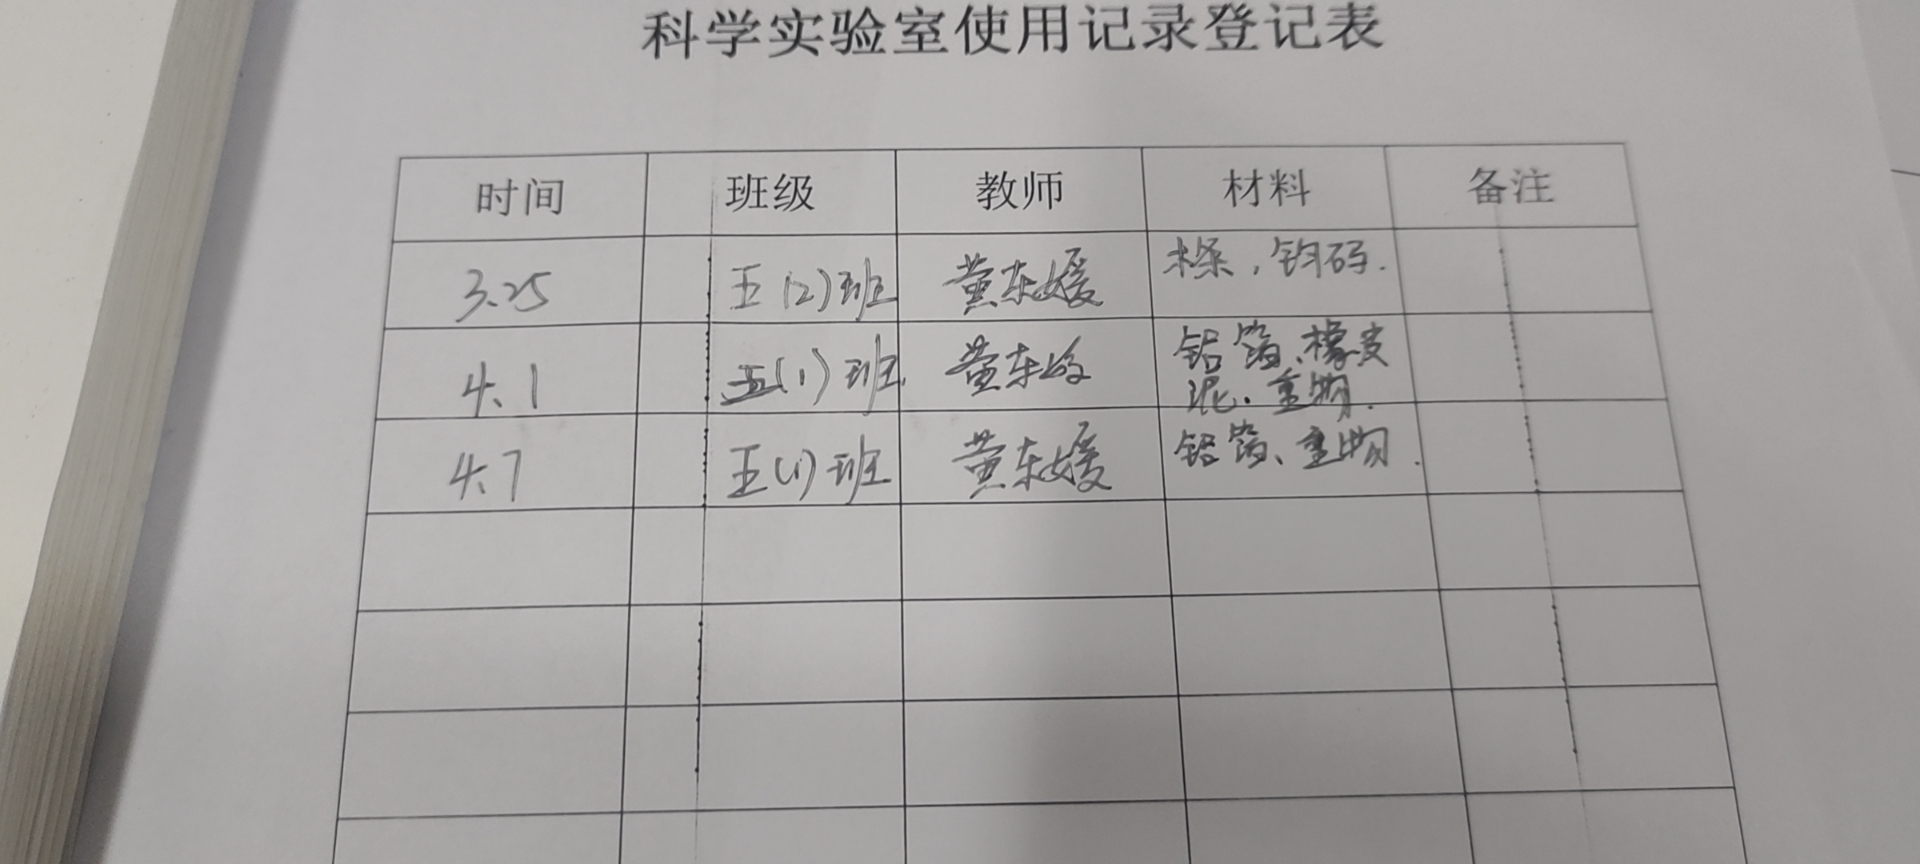 科学实验室使用记录登记表
时间 班级 教师 材料 备注
3.25 五(2)班 黄东媛 木条，钩码.
4.1 五(1)班. 黄东媛 铝箔、橡皮
泥、重物.
4.7 五(1)班 黄东媛 铝箔、重物.